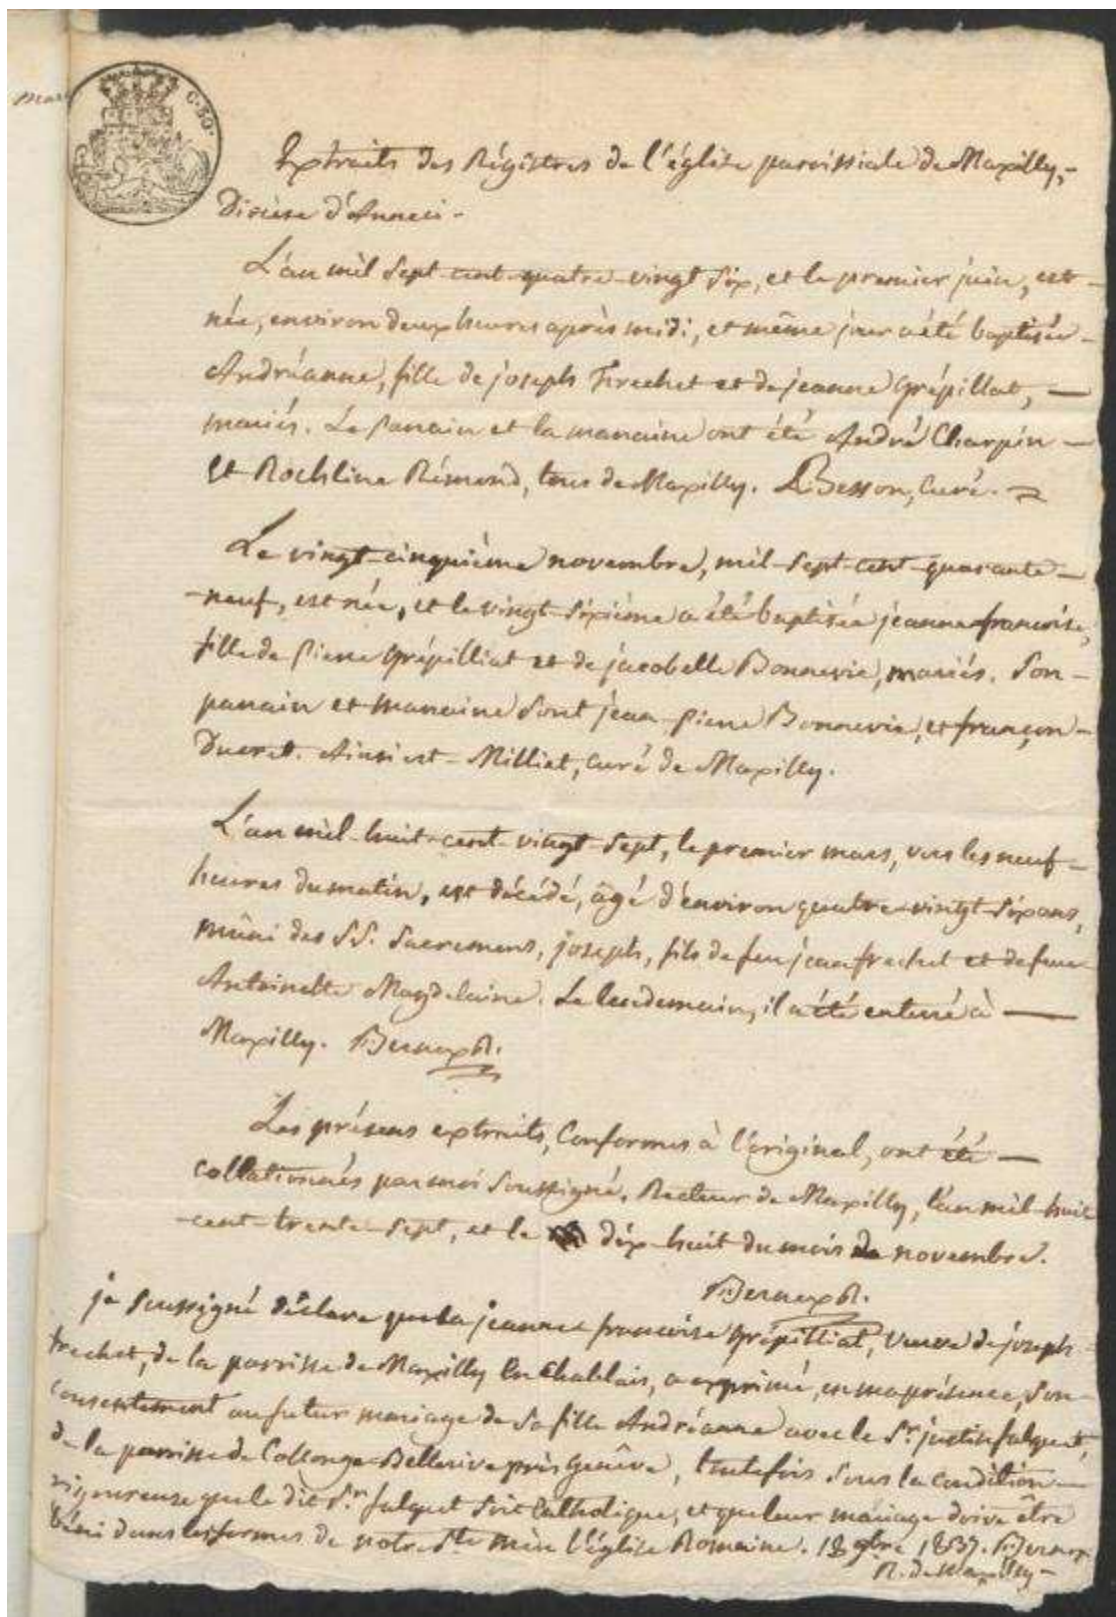 mar
C. 50.
Extraits des Régistres de l'église paroissiale de Maxilly,-
Diocèse d'Anneci -
L'an mil sept-cent-quatre-vingt-six, et le premier juin, est
née, environ deux heures après midi, et même jour a été baptisée
Andréanne, fille de joseph Frechet et de jeanne Grépillat,
mariés. Le Parrain et la marraine ont été André Charpin
Et Rochline Rémond, tous de Maxilly. Besson, Curé.
Le vingt-cinquième novembre, mil-sept-cent-quarante-
-neuf, est née, et le vingt-sixième a été baptisée jeanne françoise,
fille de Pierre Grépilliat et de jacobelle Bonnevie, mariés. Son-
parrain et marraine sont jean-pierre Bonnevie, et françon-
Ducret. Ainsi est - Milliet, Curé de Maxilly.
L'an mil-huit-cent-vingt-sept, le premier mars, vers les neuf
heures du matin, est décédé, âgé d'environ quatre-vingt-six ans,
muni des SS. Sacremens, joseph, fils de feu jean frechet et de feue
Antoinette Magdelaine. Le lendemain, il a été enterré à
Maxilly. Bernex R.
Les présens extraits, Conformes à l'original, ont été
collationnés par moi Soussigné, Recteur de Maxilly, l'an mil-huit
-cent-trente-sept, et le dix-huit du mois de novembre.
Bernex R.
je soussigné déclare que la jeanne françoise Grépilliat, veuve de joseph
frechet, de la paroisse de Maxilly en Chablais, a exprimé, en ma présence, son
consentement au futur mariage de sa fille Andréanne avec le Sr. justin fulquet,
de la paroisse de Collonge-Bellerive près Genêve, toutefois sous la condition
rigoureuse que le dit Sr. fulquet soit Catholique, et que leur mariage doive être
béni dans les formes de notre Ste mère l'église Romaine. 18 9bre 1837. Bernex
R. de Maxilly -